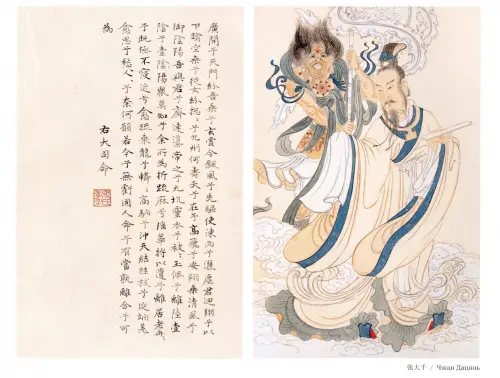 廣開兮天門紛吾乘兮玄雲令飄風兮先驅使涷雨兮灑塵君迴翔兮以
下踰空桑兮從女紛總〻兮九州何壽夭兮在予高飛兮安翔乘清氣兮
御陰陽吾與君兮齊速導帝之兮九坑靈衣兮被〻玉佩兮離陸壹
陰兮壹陽眾莫知兮余所為折疏麻兮瑤華將以遺兮離居老冉〻
兮既極不寖近兮愈疏乘龍兮轔〻高駝兮沖天結桂枝兮延佇羌
愈思兮愁人〻兮奈何願若今兮無虧固人命兮有當孰離合兮可
為
右大司命
张大千 / Чжан Дацянь